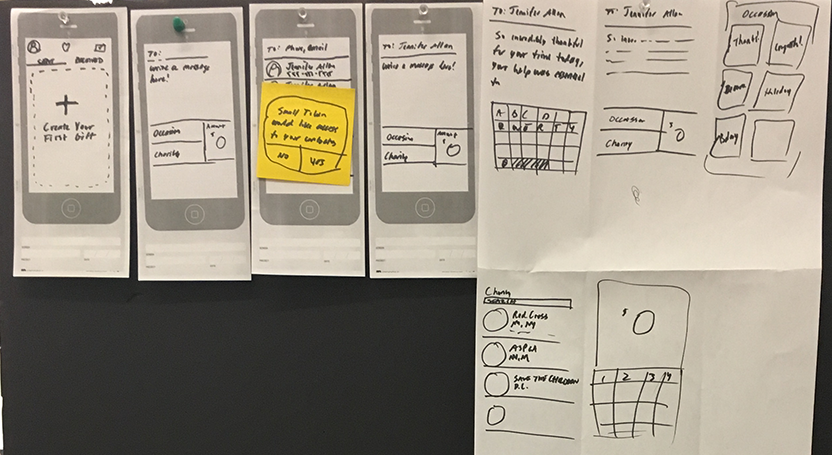 SENT RECEIVED
+
Create Your
First Gift
To:
Write a message
here!
Occasion
Amount
$ 0
Charity
To: Name, Email
Jennifer Allan
Small Token
would like access
to your contacts
NO YES
To: Jennifer Allan
Write a message here!
Occasion
Amount
$ 0
Charity
To: Jennifer Allan
So incredibly thankful
for your time today,
your help was
A B C D
To: Jennifer Allan
So
Occasion
$ 0
Charity
Occasion
Thanks!
Congrats!
Holiday
Bday
Charity
SEARCH
Red Cross
N, NY
ASPCA
SAVE THE CHILDREN
D.C.
$ 0
1 2 3